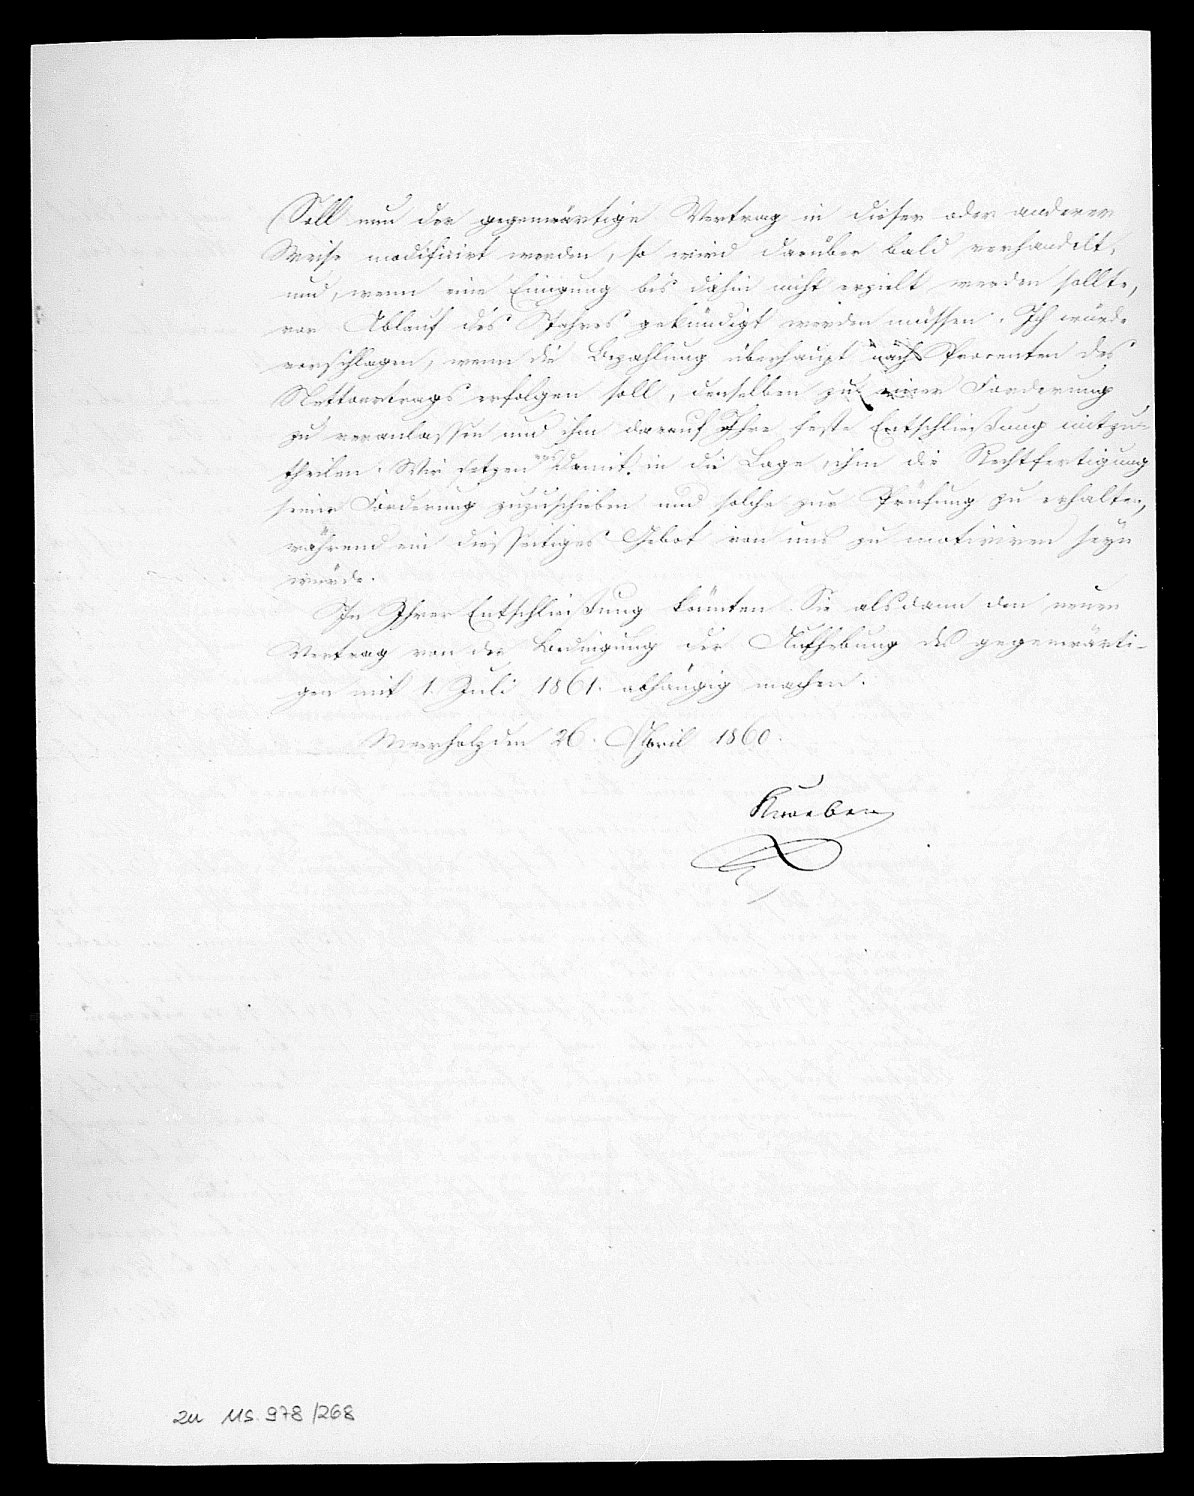 Soll nun der gegenwärtige Vertrag in dieser oder anderer
Weise modificirt werden, so wird darüber bald verhandelt,
und, wenn eine Einigung bis dahin nicht erzielt werden sollte,
vor Ablauf des Jahres gekündigt werden müssen. Ich würde
vorschlagen, wenn die Bezahlung überhaupt nach Procenten des
Nettoertrags erfolgen soll, denselben zu einer Forderung
zu veranlassen und ihm darauf Ihre feste Entschließung mitzu-
theilen. Wir setzen uns damit in die Lage, ihm die Rechtfertigung
seiner Forderung zuzuschieben und solche zur Prüfung zu erhalten,
während ein diesseitiges Gebot von uns zu motiviren seyn
würde.
In Ihrer Entschließung könnten Sie alsdann den neuen
Vertrag von der Bedingung der Aufhebung des gegenwärti-
gen mit 1. Juli 1861. abhängig machen.
Meerholz den 26. April 1860.
zu MS. 978/268